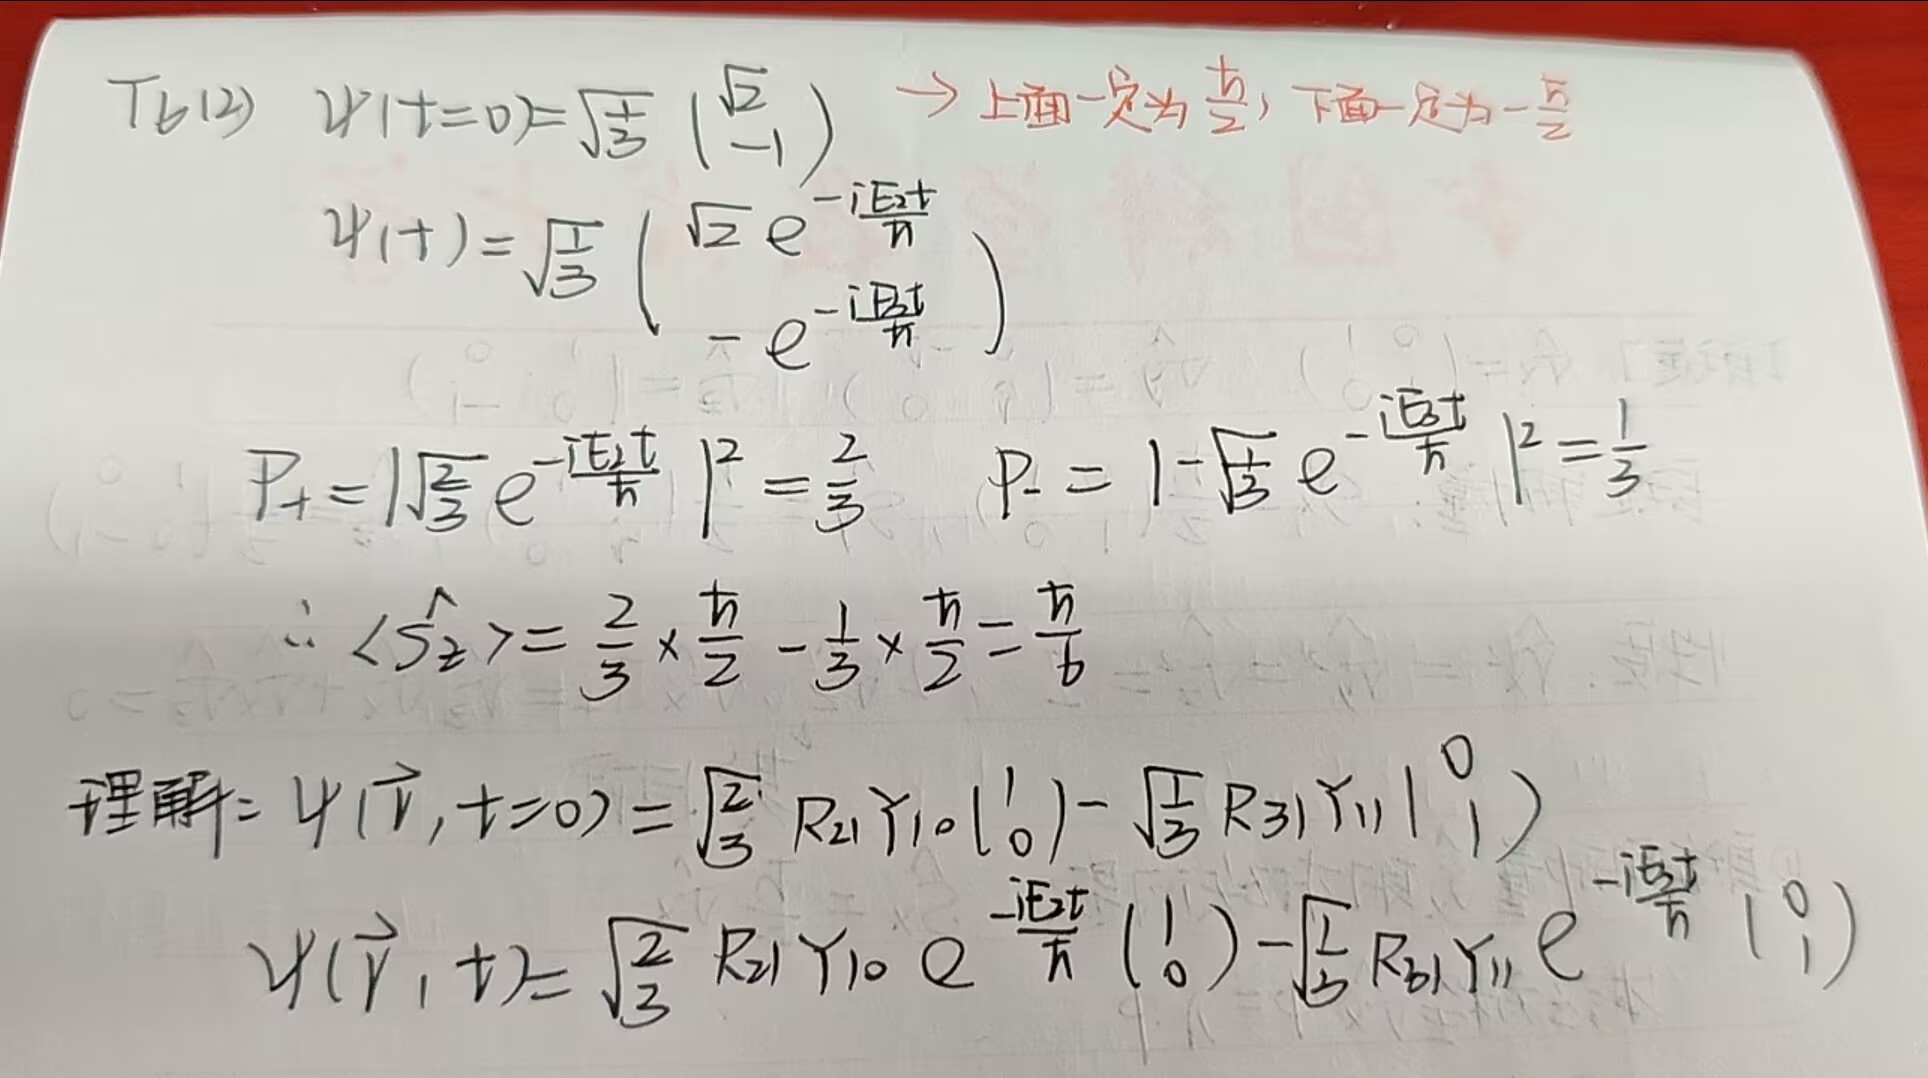 T6(2) ψ(t=0)=√(1/3) (√2 −1) → 上面一定为 ħ/2, 下面一定为 −ħ/2
ψ(t)=√(1/3) (√2 e^(−iE₂t/ħ) −e^(−iE₃t/ħ))
P₊=|√(2/3) e^(−iE₂t/ħ)|²=2/3 P₋=|−√(1/3) e^(−iE₃t/ħ)|²=1/3
∴ <Ŝz>=2/3×ħ/2−1/3×ħ/2=ħ/6
理解: ψ(r⃗, t=0)=√(2/3) R₂₁Y₁₀(1 0)−√(1/3) R₃₁Y₁₁(0 1)
ψ(r⃗, t)=√(2/3) R₂₁Y₁₀ e^(−iE₂t/ħ) (1 0)−√(1/3) R₃₁Y₁₁ e^(−iE₃t/ħ) (0 1)